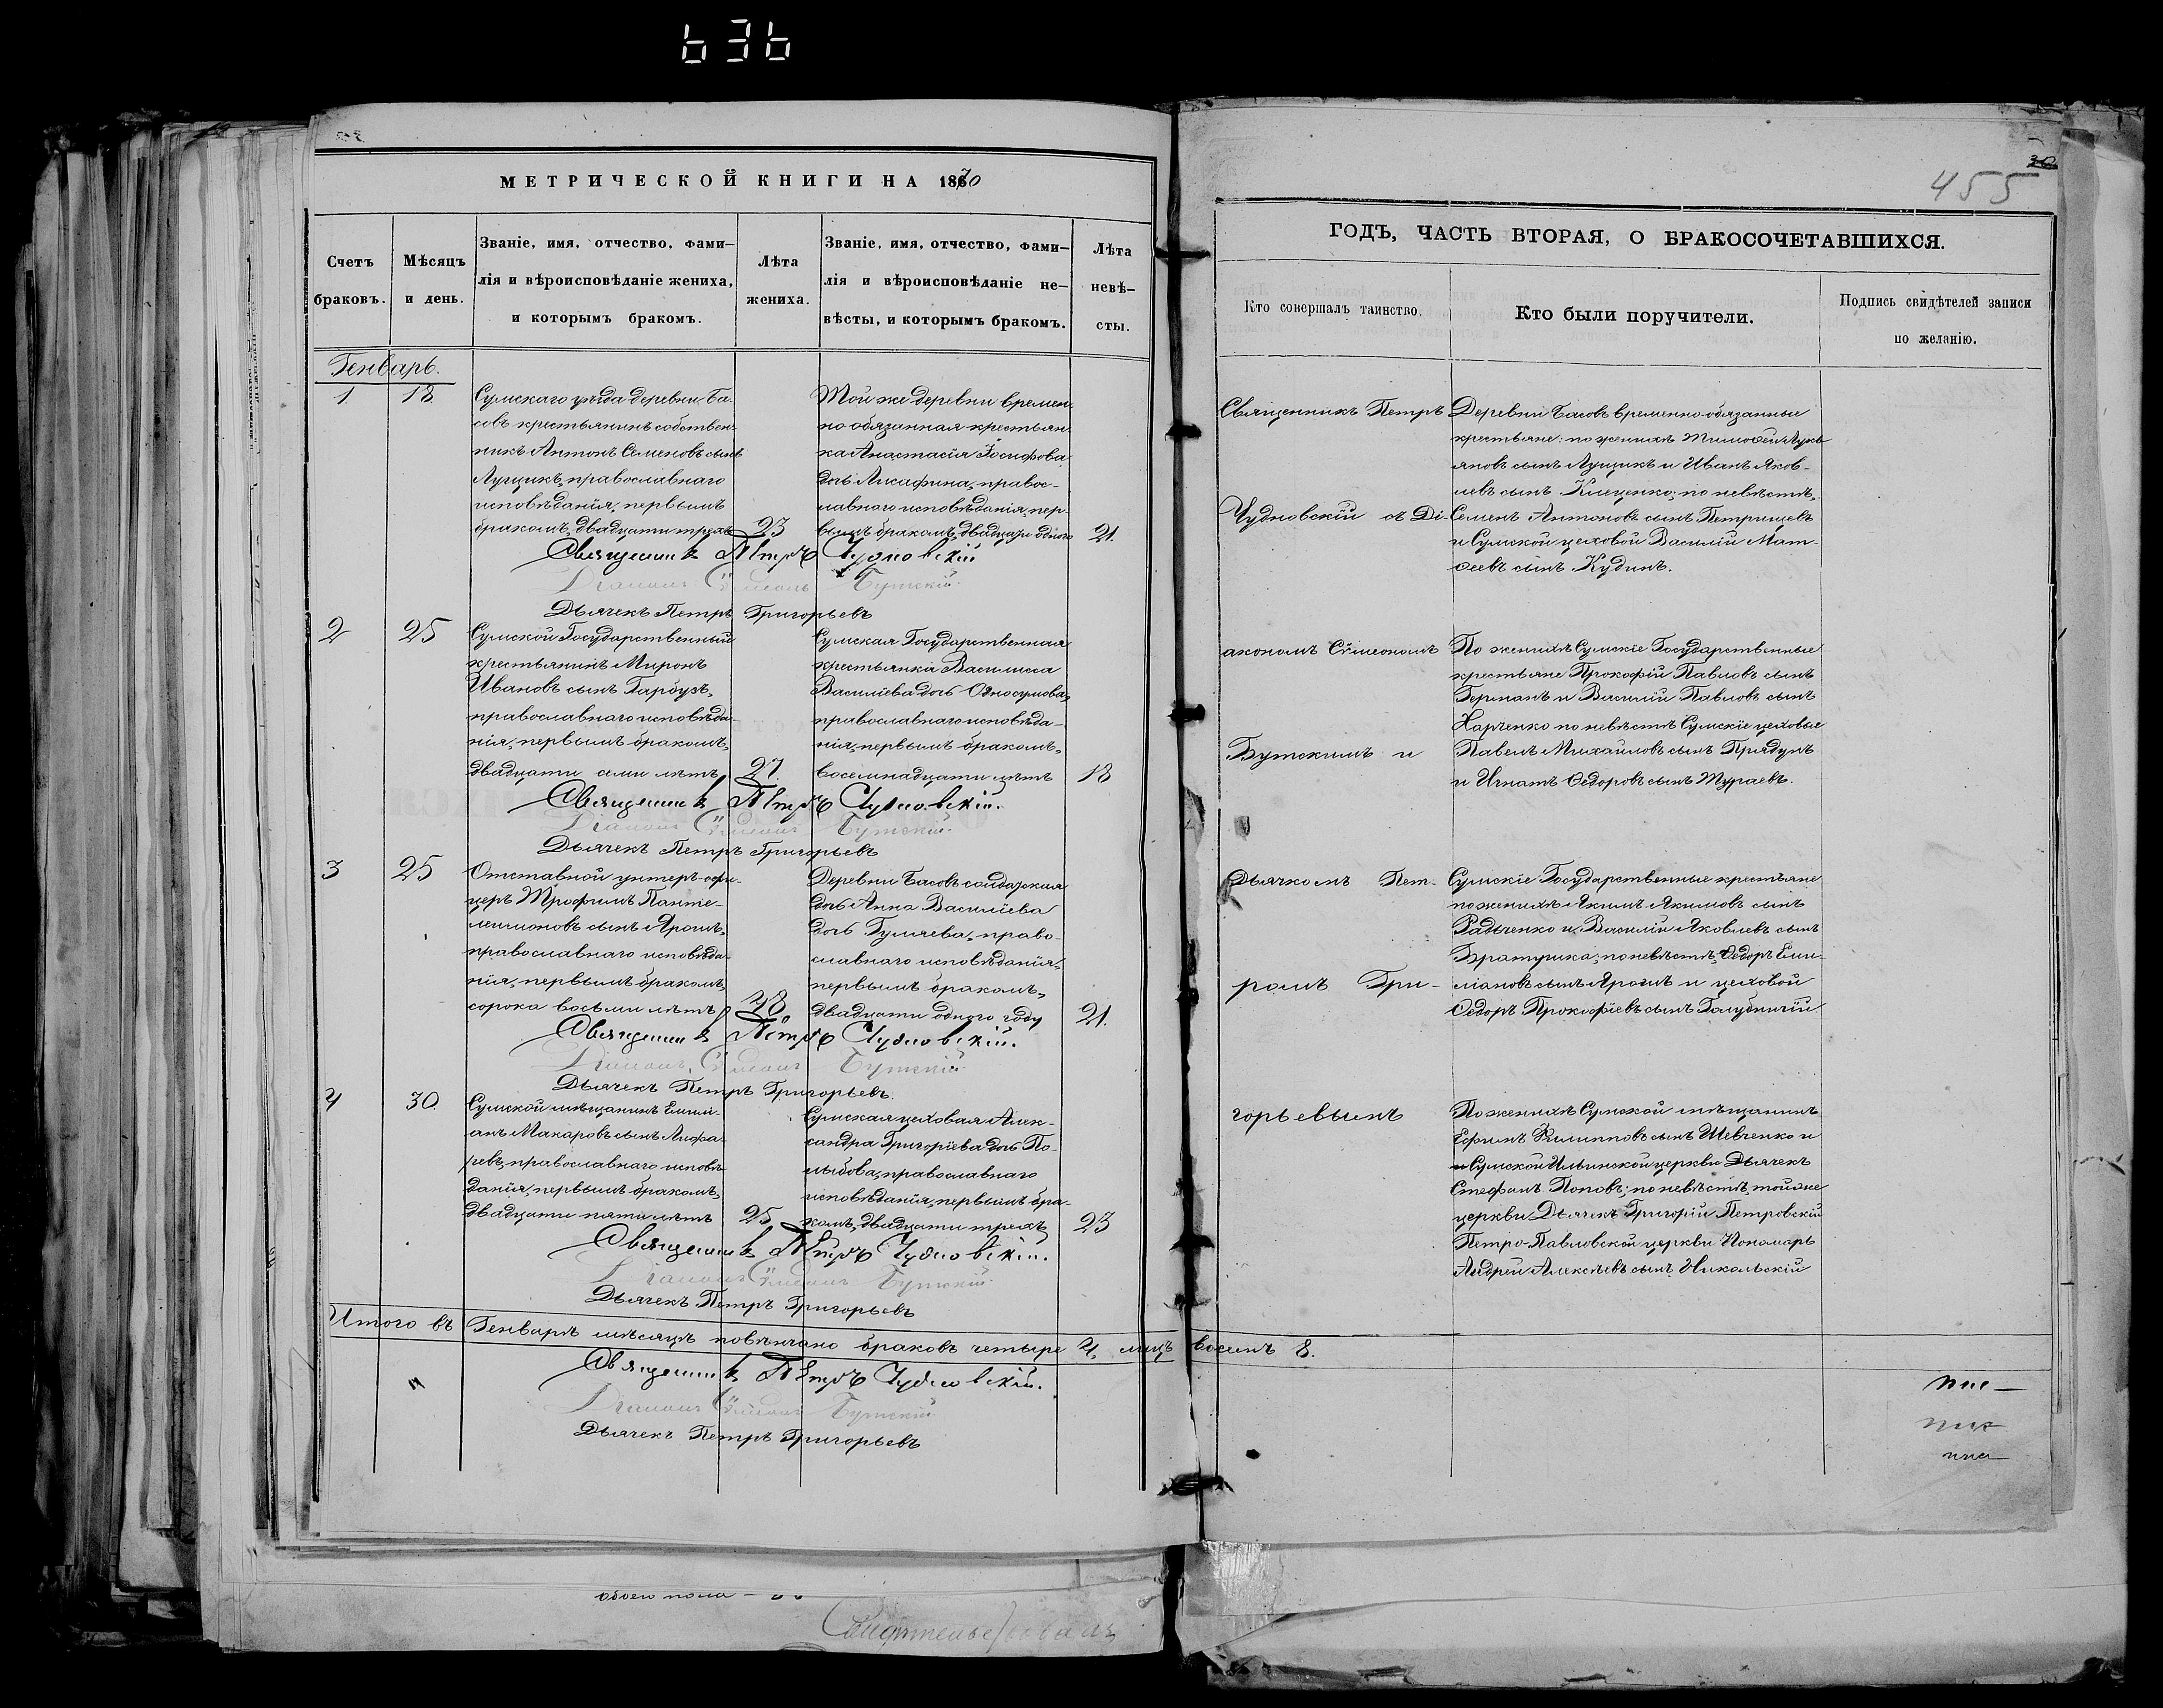 636
МЕТРИЧЕСКОЙ КНИГИ НА 1870
Счетъ браковъ.
Мѣсяцъ и день.
Званіе, имя, отчество, фами-
лія и вѣроисповѣданіе жениха,
и которымъ бракомъ.
Лѣта
жениха.
Званіе, имя, отчество, фами-
лія и вѣроисповѣданіе не-
вѣсты, и которымъ бракомъ.
Лѣта
невѣ-
сты.
Генварь.
1. 18.
Сумскаго уѣзда деревни Ба-
совъ крестьянинъ собствен-
никъ Антонъ Семеновъ сынъ
Лущикъ, православнаго
исповѣданія, первымъ
бракомъ, двадцати трехъ
23
Той же деревни времен-
но-обязанная крестьян-
ка Анастасія Іосифова
дочь Лисафина, правос-
лавнаго исповѣданія, пер-
вымъ бракомъ, двадцати одного
21.
Священникъ Петръ Чудновскій
Діаконъ Сѵмеонъ Бутскій
Дьячекъ Петръ Григорьевъ
2 25
Сумской Государственный
крестьянинъ Миронъ
Ивановъ сынъ Гарбузъ,
православнаго исповѣда-
нія, первымъ бракомъ,
двадцати семи лѣтъ
27.
Сумская Государственная
крестьянка Василисса
Василіева дочь Односумова,
православнаго исповѣда-
нія, первымъ бракомъ,
восемнадцати лѣтъ
18
Священникъ Петръ Чудновскій.
Діаконъ Сѵмеонъ Бутскій.
Дьячекъ Петръ Григорьевъ
3 25
Отставной унтеръ-офи-
церъ Трофимъ Панте-
леимоновъ сынъ Ярошъ,
православнаго исповѣда-
нія, первымъ бракомъ,
сорока восьми лѣтъ
48.
Деревни Басовъ солдатская
дочь Анна Василіева
дочь Гуляева, право-
славнаго исповѣданія,
первымъ бракомъ,
двадцати одного году
21.
Священникъ Петръ Чудновскій.
Діаконъ Сѵмеонъ Бутскій
Дьячекъ Петръ Григорьевъ.
4 30.
Сумской мѣщанинъ Емили-
анъ Макаровъ сынъ Лифа-
ревъ, православнаго исповѣ-
данія, первымъ бракомъ,
двадцати пяти лѣтъ
25
Сумская цеховая Алек-
сандра Григоріева дочь По-
лыбова, православнаго
исповѣданія, первымъ бра-
комъ, двадцати трехъ
23
Священникъ Петръ Чудновскій.
Діаконъ Сѵмеонъ Бутскій.
Дьячекъ Петръ Григорьевъ
Итого въ Генварѣ мѣсяцѣ повѣнчано браковъ четыре 4, лицъ восемь 8.
Священникъ Петръ Чудновскій.
Діаконъ Сѵмеонъ Бутскій
Дьячекъ Петръ Григорьевъ
обоего пола —
30
455
ГОДЪ, ЧАСТЬ ВТОРАЯ, О БРАКОСОЧЕТАВШИХСЯ.
Кто совершалъ таинство.
Кто были поручители.
Подпись свидѣтелей записи
по желанію.
Священникъ Петръ
Чудновскій съ Ді-
акономъ Сѵмеономъ
Бутскимъ и
Дьячкомъ Пет-
ромъ Гри-
горьевымъ
Деревни Басовъ временно-обязанные
крестьяне: по женихѣ Тимоѳей Лукь-
яновъ сынъ Лущикъ и Иванъ Яков-
левъ сынъ Клеценко; по невѣстѣ,
Семенъ Антоновъ сынъ Петрищевъ
и Сумской цеховой Василій Мат-
ѳеевъ сынъ Кудинъ.
По женихѣ Сумскіе Государственные
крестьяне Прокофій Павловъ сынъ
Германъ и Василій Павловъ сынъ
Харченко по невѣстѣ Сумскіе цеховые
Павелъ Михайловъ сынъ Прядунъ
и Игнатъ Ѳедоровъ сынъ Тураевъ.
Сумскіе Государственные крестьяне
по женихѣ Якимъ Якимовъ сынъ
Радченко и Василій Яковлевъ сынъ
Братушка; по невѣстѣ, Ѳедоръ Еми-
ліановъ сынъ Ярошъ и цеховой
Ѳедоръ Прокофіевъ сынъ Голубничій
По женихѣ Сумской мѣщанинъ
Ефимъ Филипповъ сынъ Шевченко и
и Сумской Ильинской церкви Дьячекъ
Стефанъ Поповъ; по невѣстѣ, той же
церкви Дьячекъ Григорій Петровскій
Петро-Павловской церкви Пономарь
Андрей Алексѣевъ сынъ Никольскій